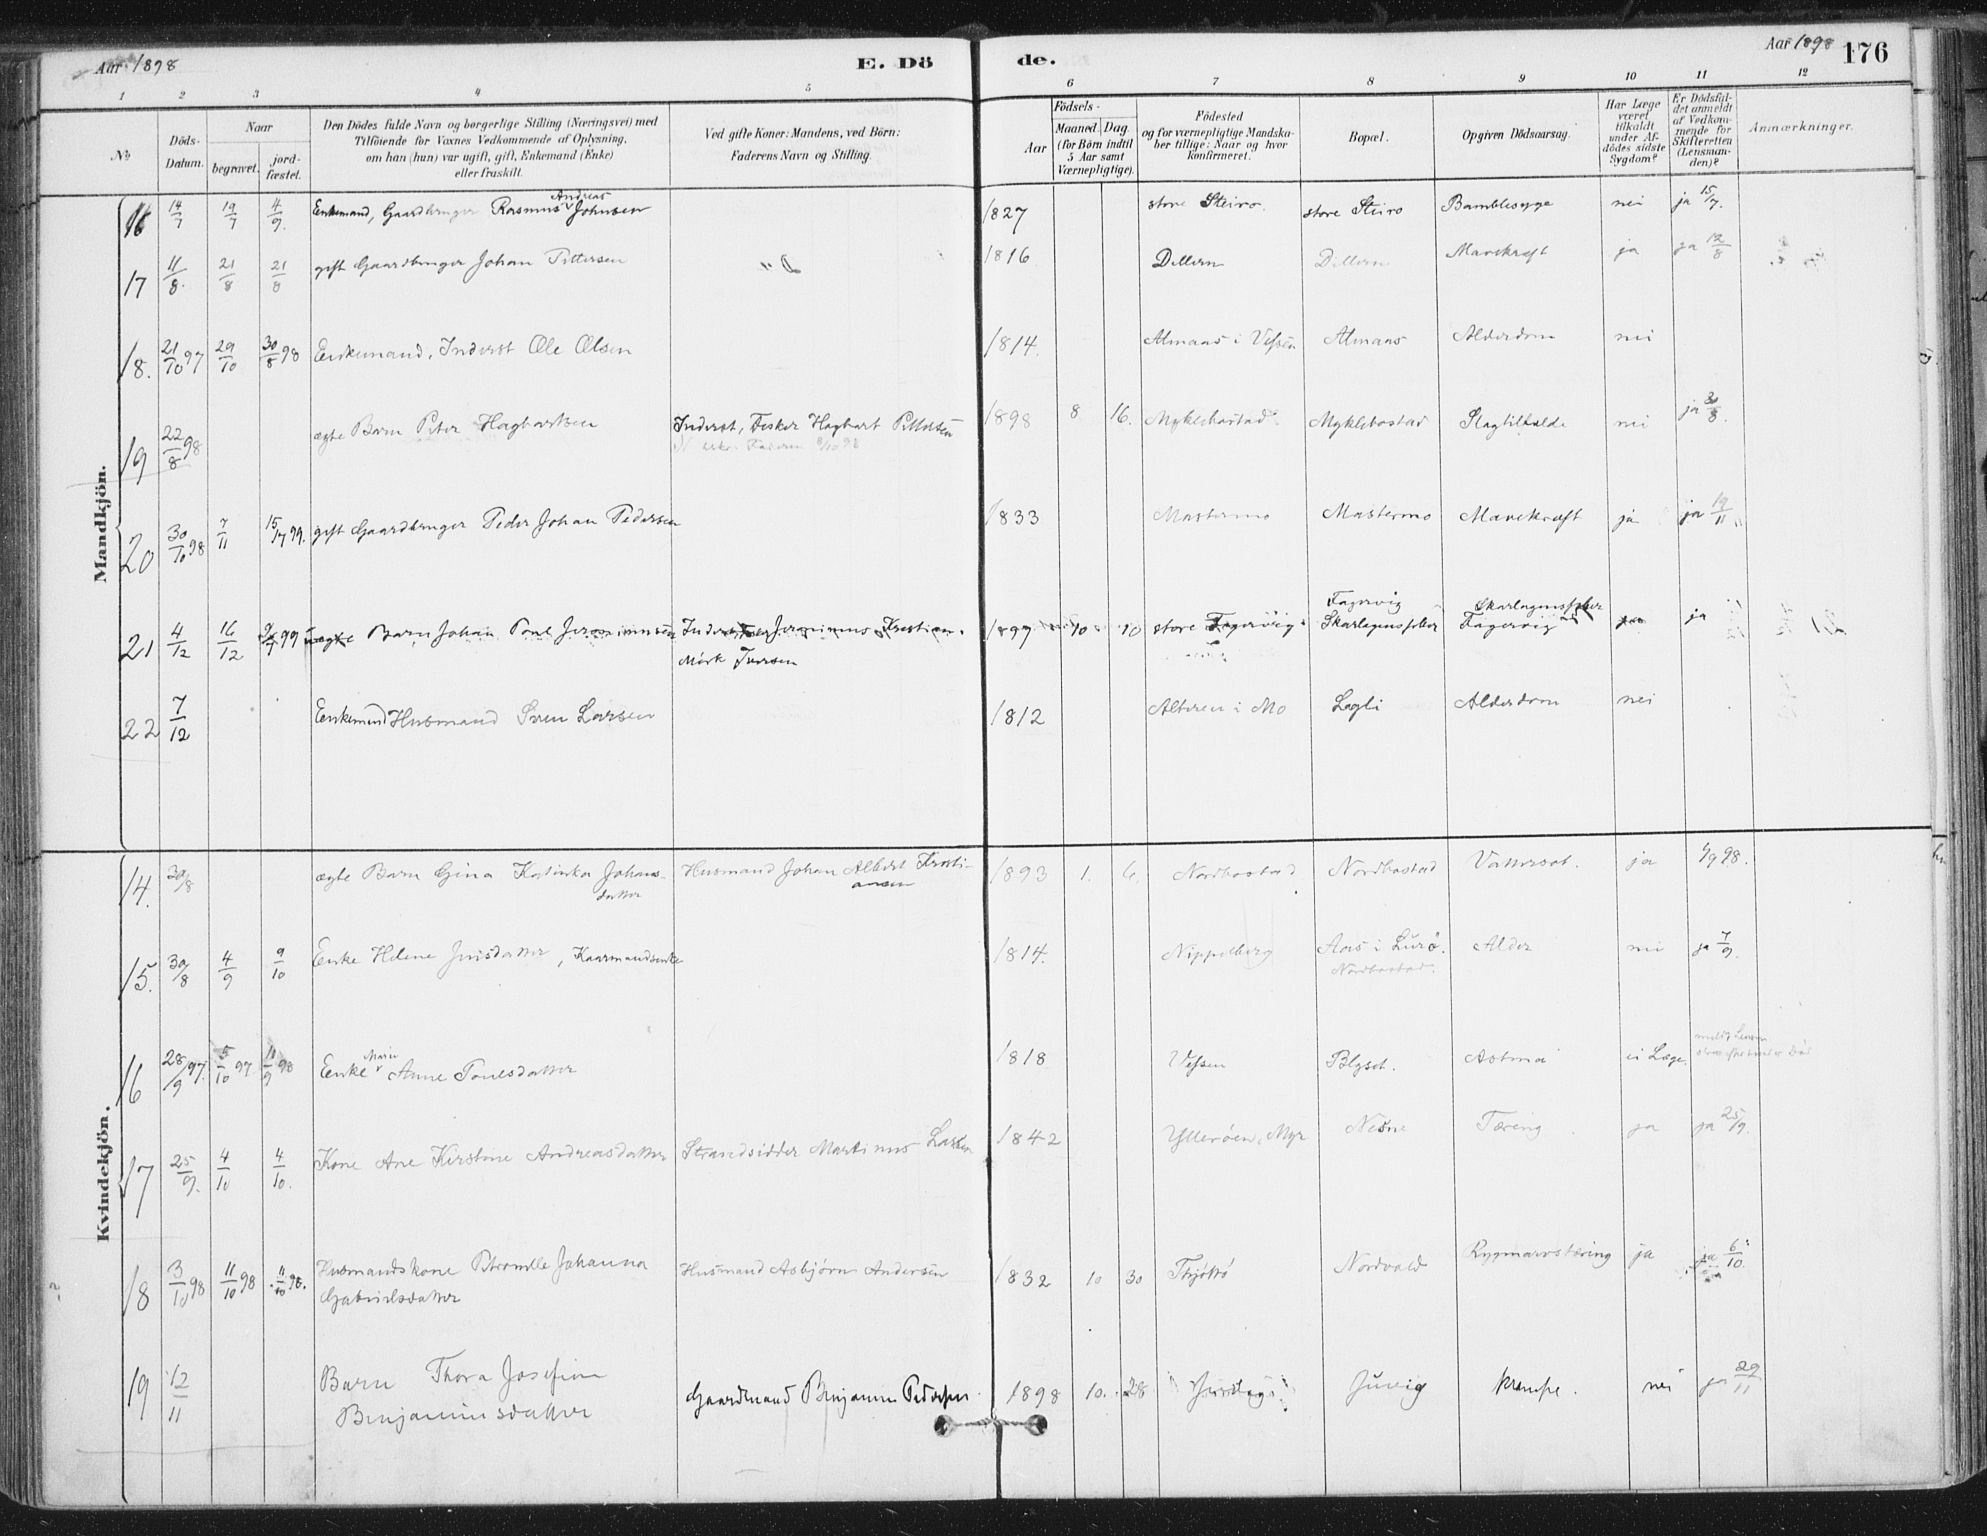 Aar 1898
E. Dö
de.
Aar 1898
176
1 2 3 4 5 6 7 8 9 10 11 12
No
Döds-
Datum.
Naar
begravet.
jord-
fæstet.
Den Dödes fulde Navn og borgerlige Stilling (Næringsvei) med
Tilföiende for Voxnes Vedkommende af Oplysning,
om han (hun) var ugift, gift, Enkemand (Enke)
eller fraskilt.
Ved gifte Koner: Mandens, ved Börn:
Faderens Navn og Stilling.
Födsels-
Aar
Maaned. Dag.
(for Börn indtil
5 Aar samt
Værnepligtige).
Födested
og for værnepligtige Mandska-
ber tillige: Naar og hvor
konfirmeret.
Bopæl.
Opgiven Dödsaarsag.
Har Læge
været
tilkaldt
under Af-
dödes sidste
Sygdom?
Er Dödsfal-
det anmeldt
af Vedkom-
mende for
Skifteretten
(Lensman-
den)?
Anmærkninger.
Mandkjön.
Andreas
16 14/7 19/7 4/9. Enkemand, Gaardbruger Rasmus Johnsen 1827 store Steiro. store Steiro Bamblesyge nei ja 15/7.
17 11/8. 21/8 21/8 gift Gaardbruger Johan Pettersen 1816 Dillern Dillern Mavekræft ja ja 12/8
18. 21/10 97 29/10 30/8 98 Enkemand, Inderst Ole Olsen 1814. Almaas i Vefsen Almaas Alderdom nei
19 22/8 98 ægte Barn Peter Hagbartsen Inderst, Fisker Hagbart Pettersen 1898 8 16. Myklebostad Myklebostad Slagtilfælde nei ja 30/8.
20 30/10 98 7/11 15/7 99. gift Gaardbruger Peder Johan Pedersen 1833 Mastermo Mastermo Mavekræft ja ja 19/11
Fagervig Skarlagensfeber
21 4/12 16/12 99 uægte Barn Johan Jeronimussen Inderst Jeronimus Kristian 1897 10 10 store Fagervig Skarlagensfeber Fagervig ja ja
Mörk Iversen
22 7/12 Enkemand Husmand Sven Larsen 1812 Alteren i Mo Lagli Alderdom nei
Kvindekjön.
14. 30/8 ægte Barn Gina Katinka Johans- Husmand Johan Albert Kristi- 1893 1. 6. Nordbostad Nordbostad Vattersot. ja 4/9 98.
datter ansen
15. 30/8 4/9 9/10 Enke Helene Jensdatter, Kaarmandsenke 1814. Nippelberg Aas i Lurö. Alder nei ja 7/9.
Nordbostad.
Marie
16 28/9 97. 5/10 97 11/9 98 Enke Anne Tonesdatter 1818 Vefsen Blyset. Astma ei Læge
17 25/9. 4/10 4/10. Kone Ane Kirstine Andreasdatter Strandsidder Martinus Larsen 1842 Ytterøen, Myr Nesne Tæring ja ja 25/9.
18 3/10 98 11/10 98 11/10 98. Husmandskone Petronille Johanna Husmand Asbjørn Andersen 1832 10 30 Thjøttø Nordvald Rygmarvstæring ja ja 6/10.
Gabrielsdatter
19 12/11 Barn Thora Josefine Gaardmand Benjamin Pedersen 1898 10. 28 Juvig krampe. nei ja 29/11
Benjaminsdatter